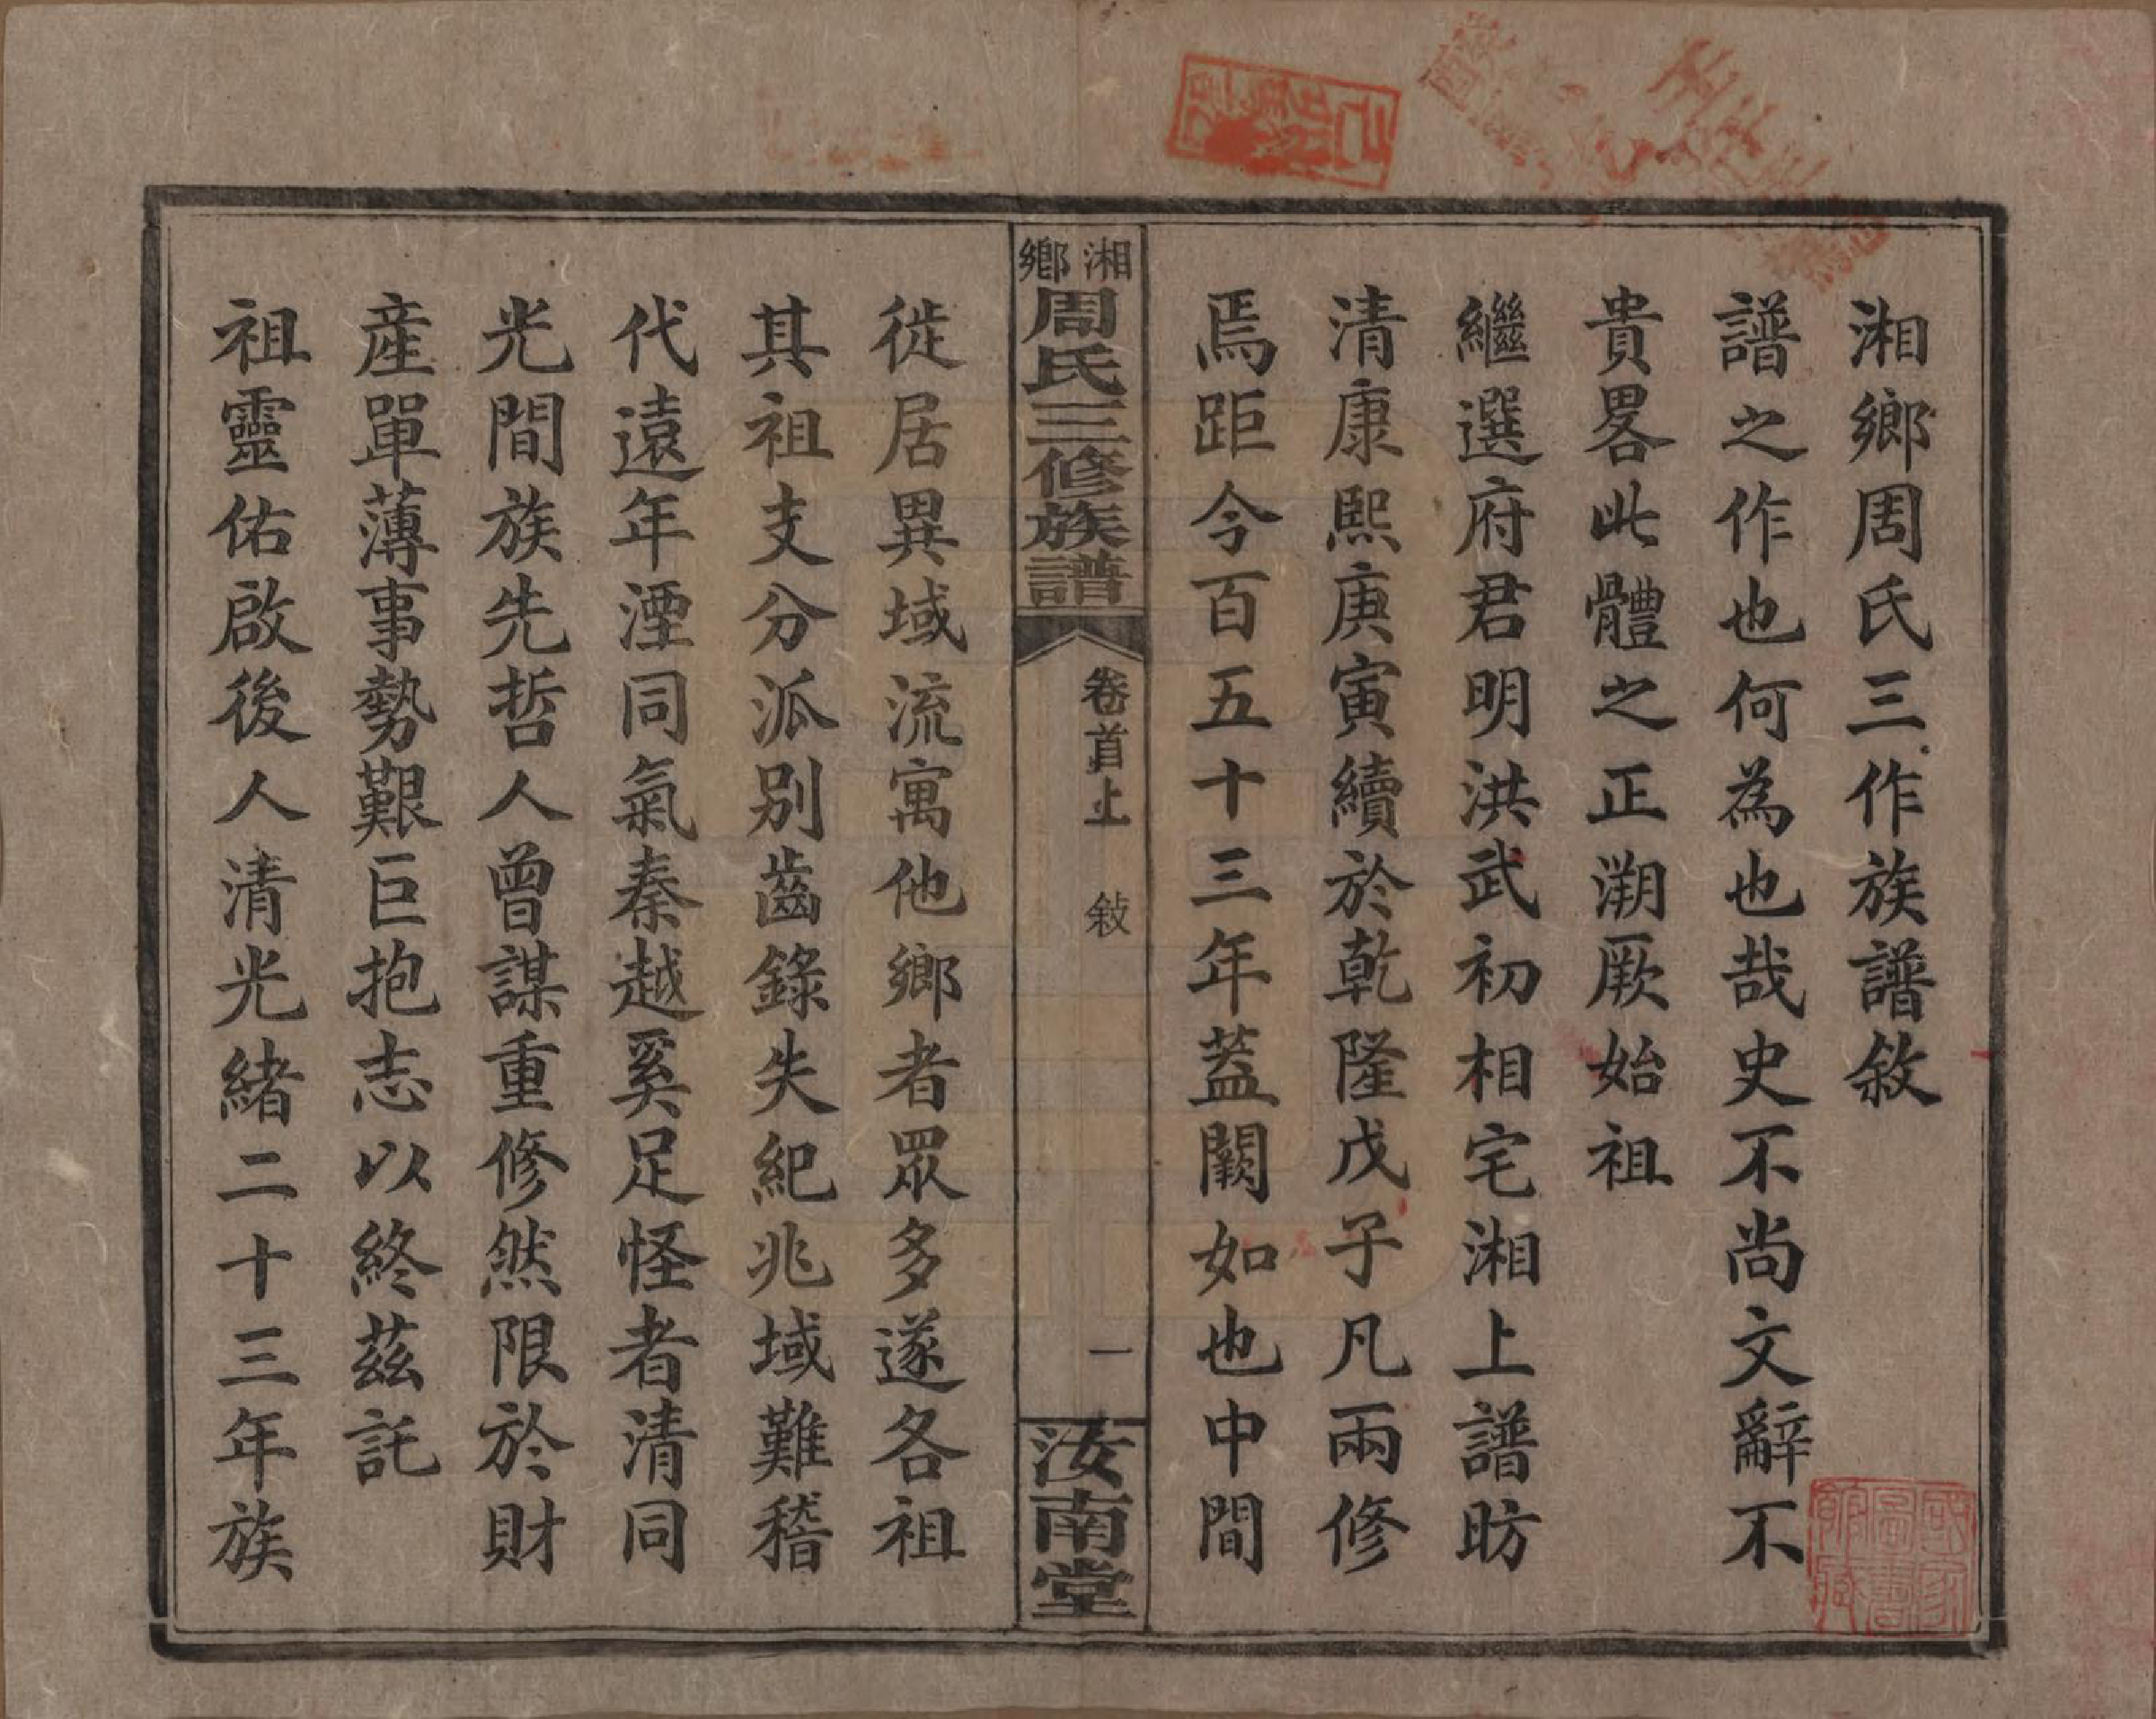 湘鄉周氏三作族譜敘
譜之作也何為也哉史不尚文辭不
貴畧此體之正溯厥始祖
繼選府君明洪武初相宅湘上譜昉
清康熙庚寅續於乾隆戊子凡兩修
焉距今百五十三年蓋闕如也中間
湘鄉周氏三修族譜
卷首上 敍
一
汝南堂
徙居異域流寓他鄉者眾多遂各祖
其祖支分派別齒錄失紀兆域難稽
代遠年湮同氣秦越奚足怪者清同
光間族先哲人曾謀重修然限於財
產單薄事勢艱巨抱志以終茲託
祖靈佑啟後人清光緒二十三年族
國家圖書館藏